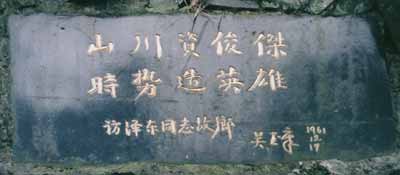 山川資俊傑
時势造英雄
访泽东同志故鄉
吴玉章 1961
12.
17